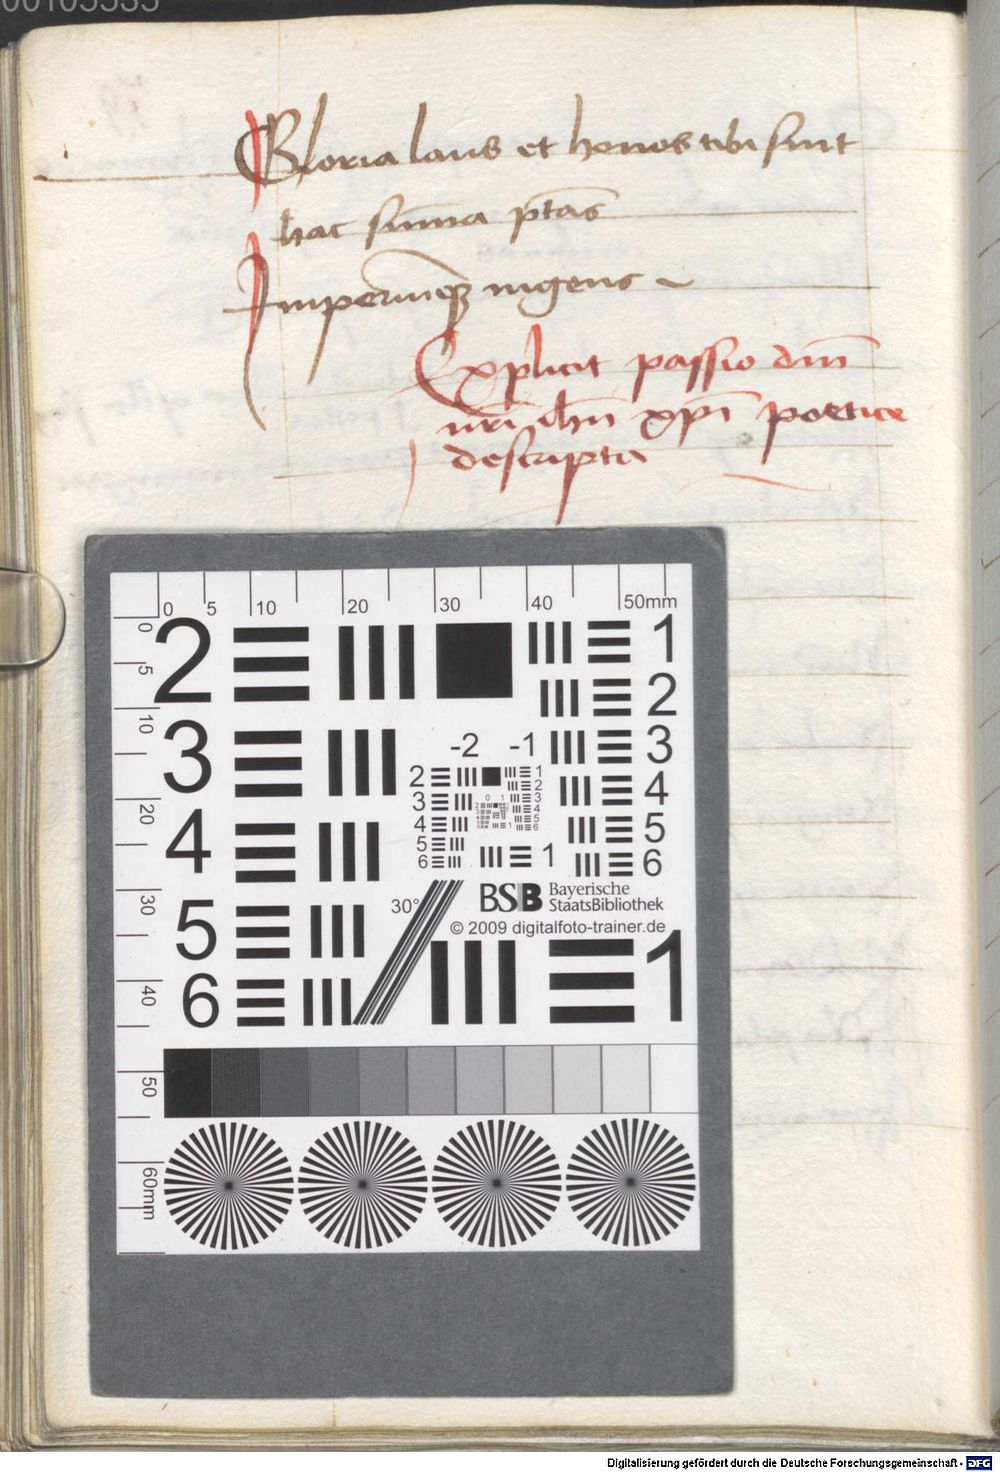 00105535
Gloria laus et honos tibi sint
hac sūma ptās
Imperiūqꝫ ingens
Explicit passio dm̄
nr̄i ihū xp̄i poetice
descripta
0 5 10 20 30 40 50mm
0 5 10 20 30 40 50 60mm
2 1
2
3 -2 -1 3
4 4
5 5
6 6
2 1
3 2
4 3
5 4
6 5
6
0 1
1
30°
BSB Bayerische
StaatsBibliothek
© 2009 digitalfoto-trainer.de
1
Digitalisierung gefördert durch die Deutsche Forschungsgemeinschaft - DFG